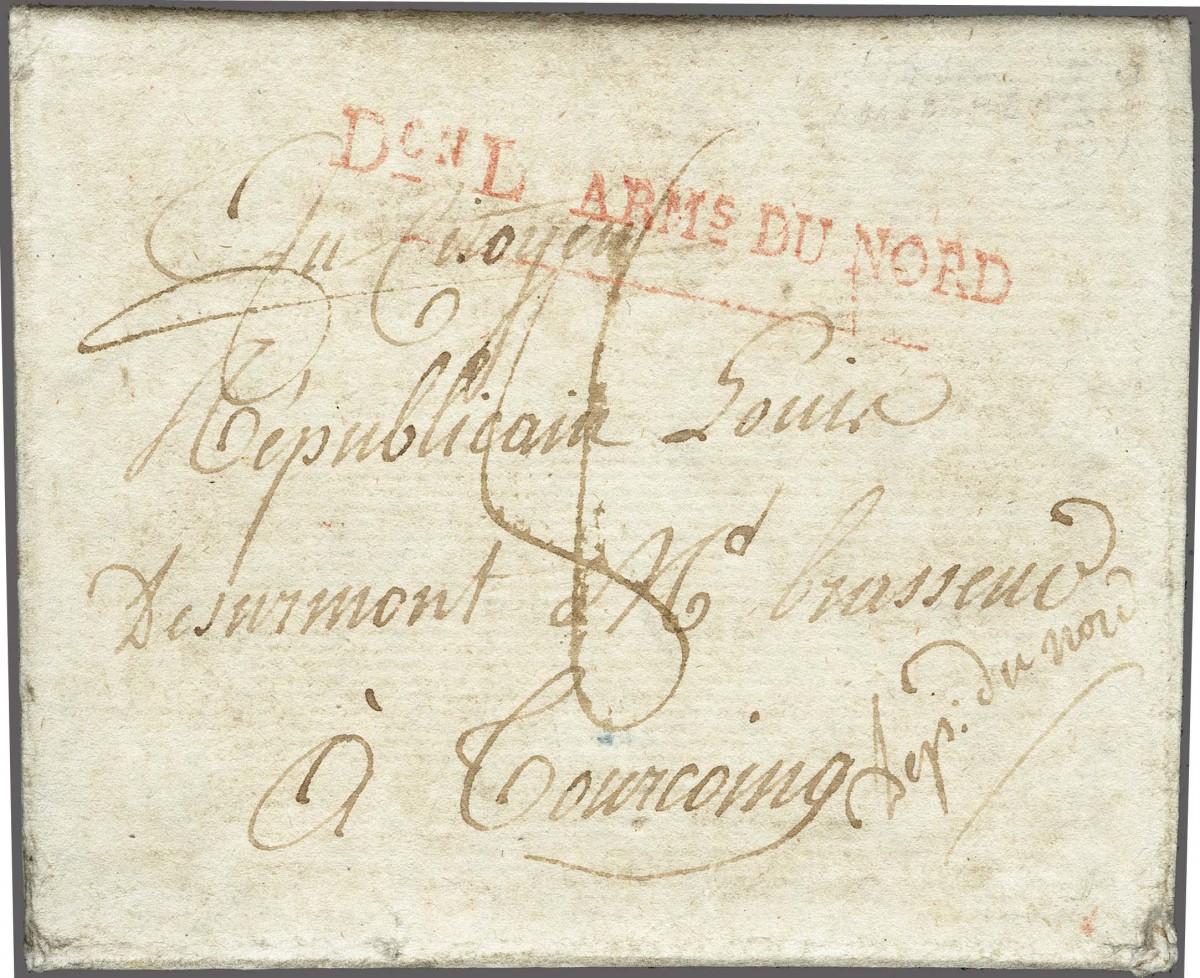 DCN L ARMS DU NORD
Au Citoyen
Républicain Louis
Desurmont Md brasseur
à Tourcoing
Dept. du nord